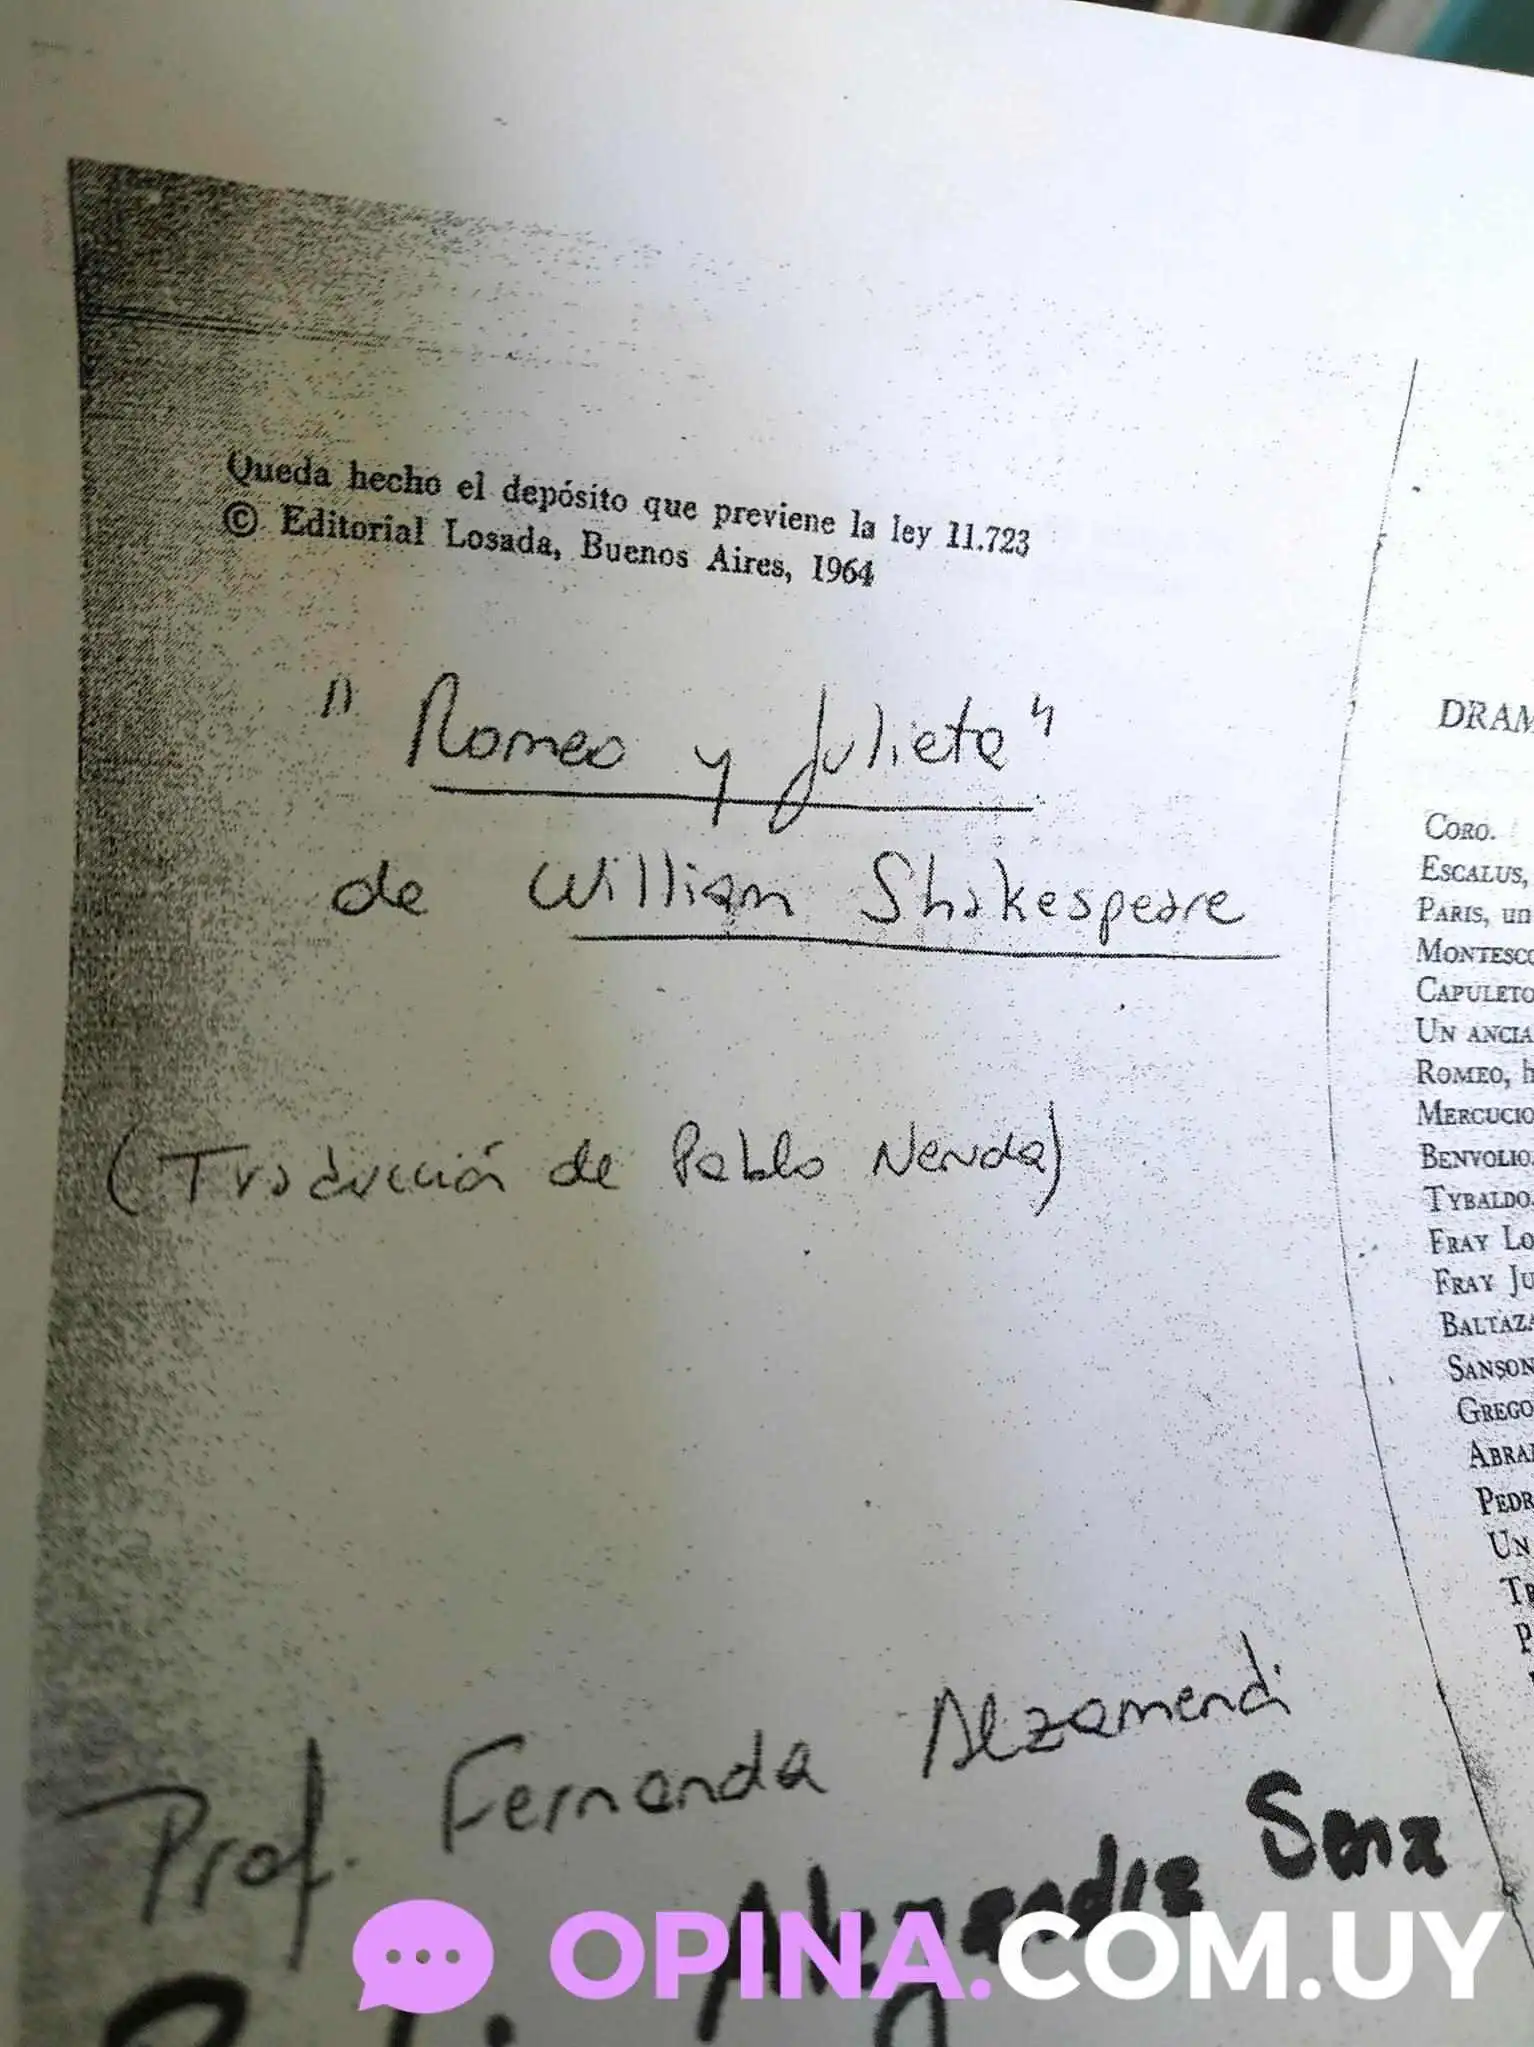 Queda hecho el depósito que previene la ley 11.723
© Editorial Losada, Buenos Aires, 1964
"Romeo y Julieta"
de William Shakespeare
(Traducción de Pablo Neruda)
Prof. Fernanda Alzamendi
OPINA.COM.UY
DRAM
CORO.
ESCALUS,
PARIS, un
MONTESCO
CAPULETO
UN ANCIA
ROMEO, h
MERCUCIO
BENVOLIO.
TYBALDO.
FRAY LO
FRAY JU
BALTAZA
SANSON
GREGO
ABRA
PEDR
UN